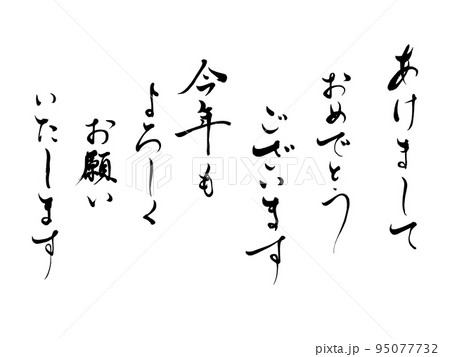 あけまして
おめでとう
ございます
今年も
よろしく
お願い
いたします
pixta.jp - 95077732